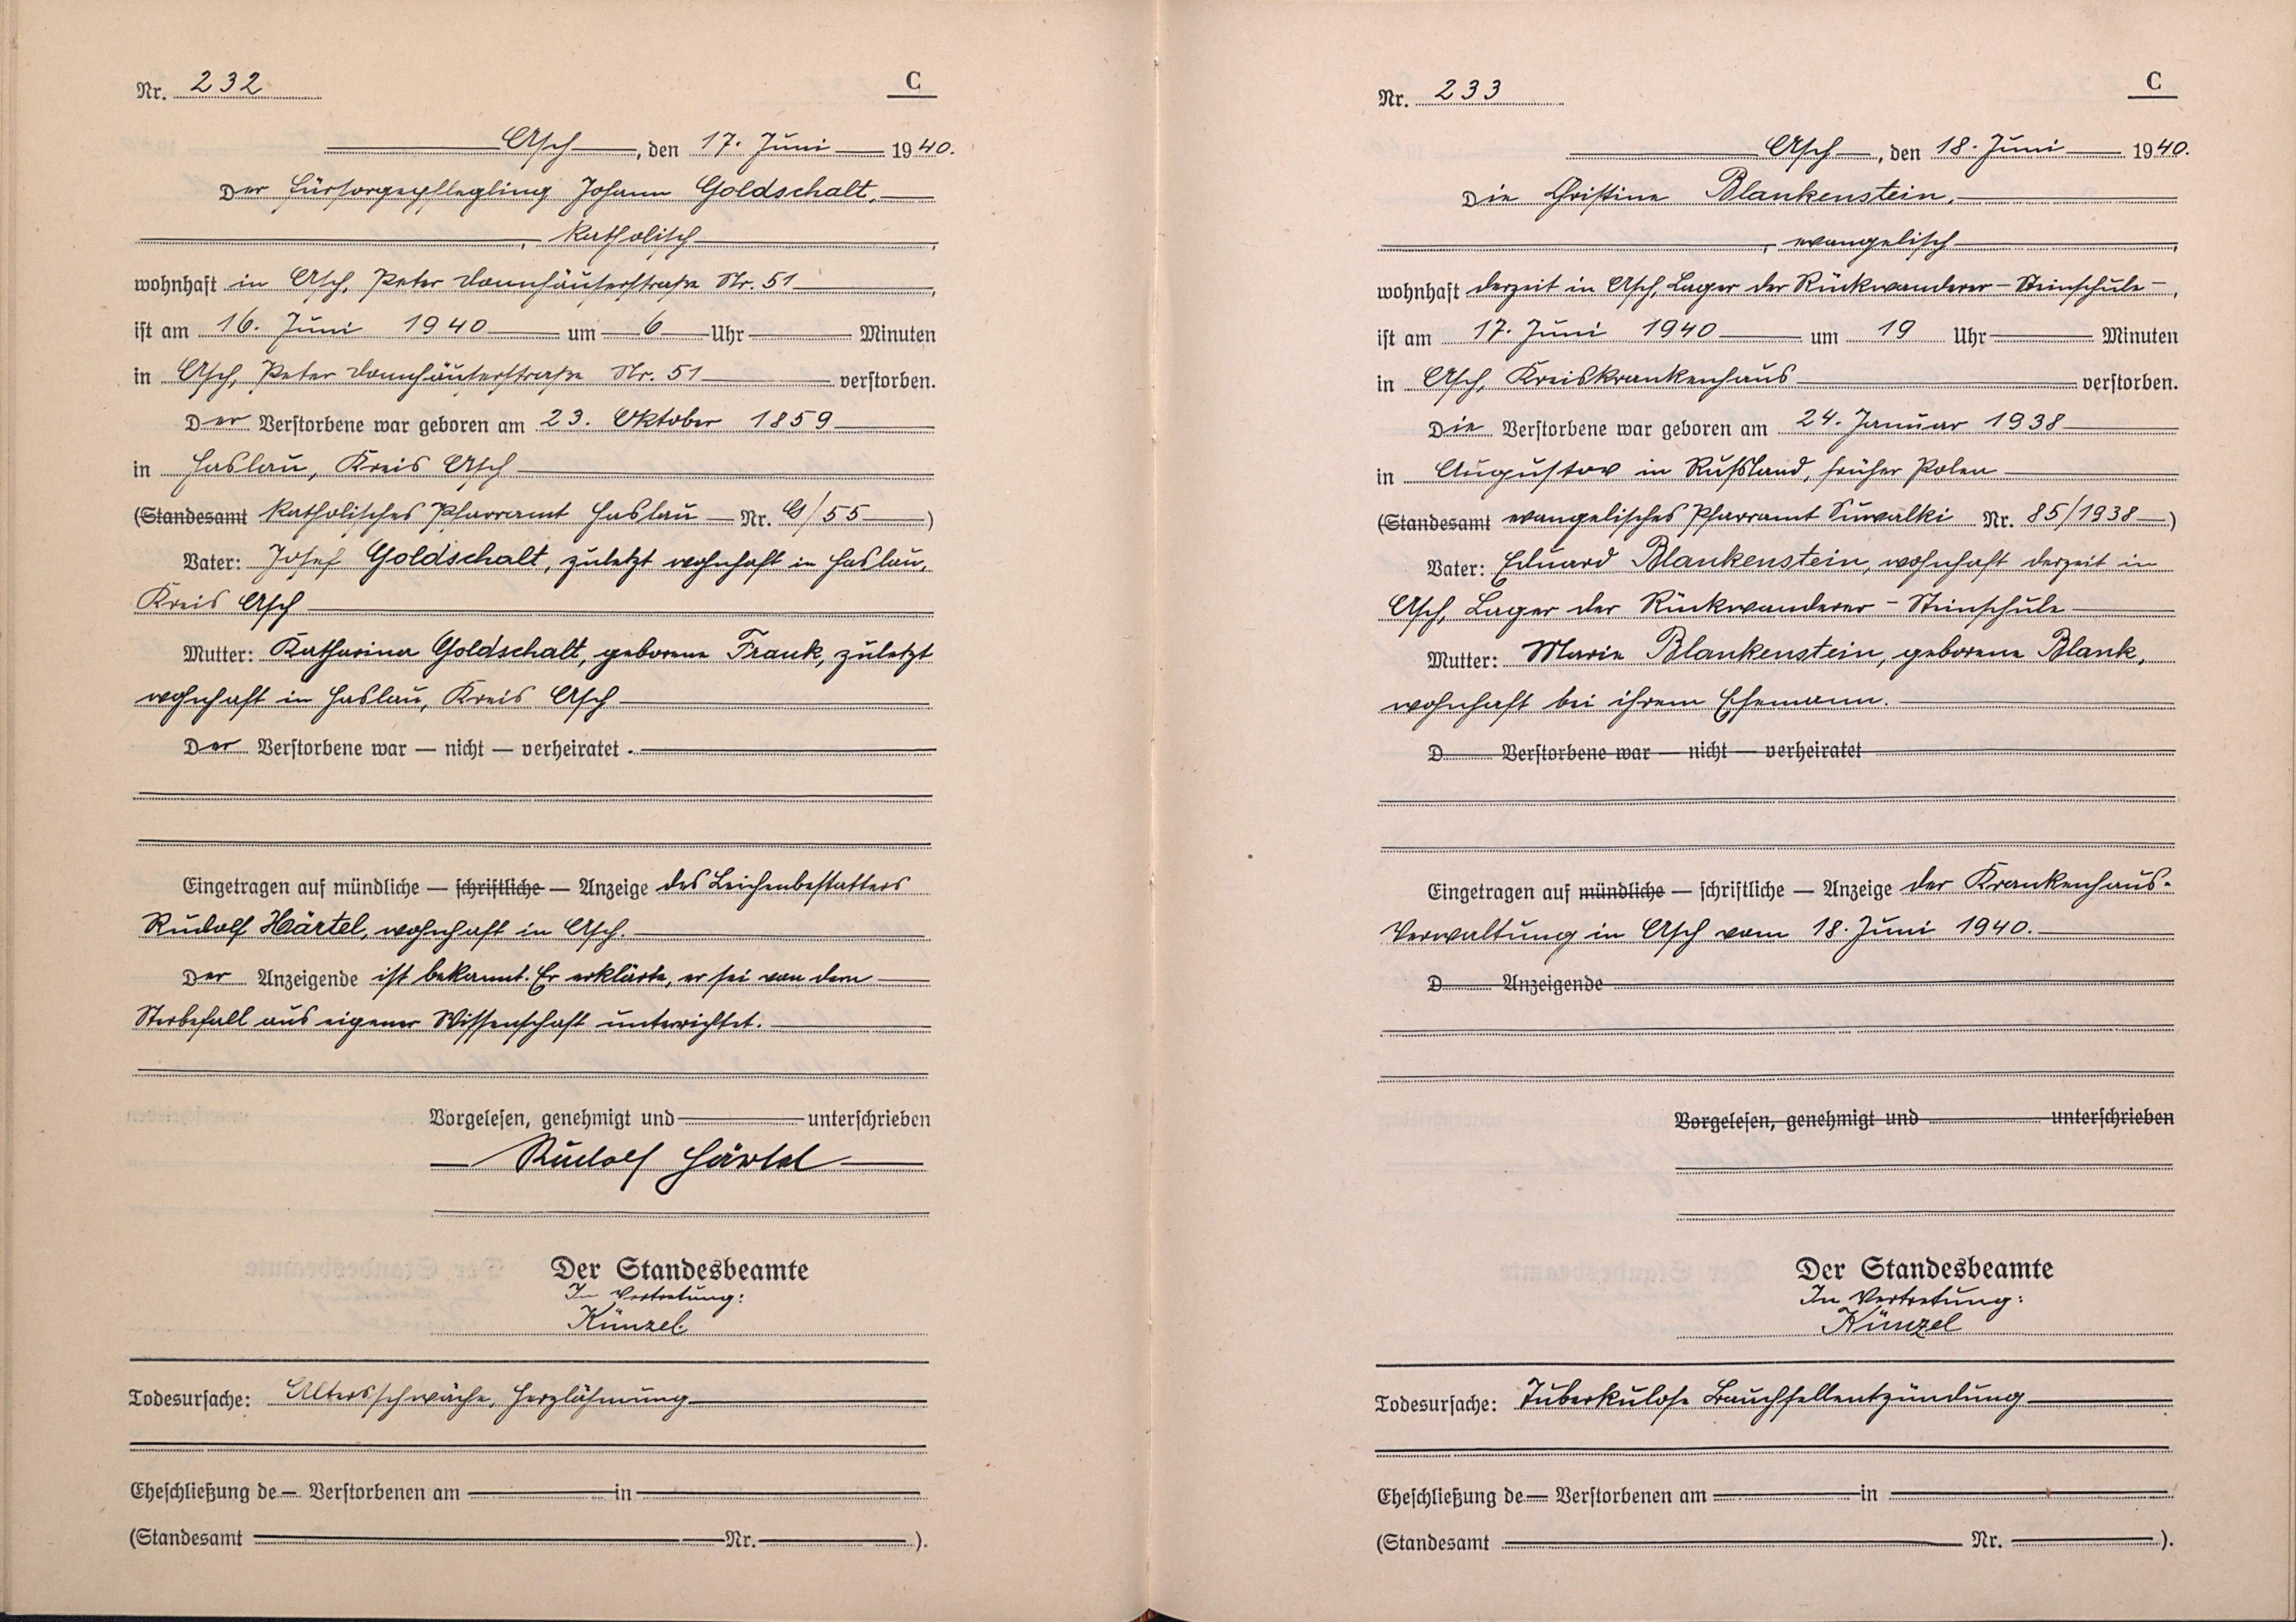 Nr. 232
C
Asch, den 17. Juni 1940.
Der Fürsorgepflegling Johann Goldschalt,
, katholisch,
wohnhaft in Asch, Peter Donnhäuserstraße Nr. 51,
ist am 16. Juni 1940 um 6 Uhr Minuten
in Asch, Peter Donnhäuserstraße Nr. 51 verstorben.
Der Verstorbene war geboren am 23. Oktober 1859
in Haslau, Kreis Asch
(Standesamt katholisches Pfarramt Haslau Nr. G/55)
Vater: Josef Goldschalt, zuletzt wohnhaft in Haslau,
Kreis Asch
Mutter: Katharina Goldschalt, geborene Frank, zuletzt
wohnhaft in Haslau, Kreis Asch
Der Verstorbene war — nicht — verheiratet.
Eingetragen auf mündliche — schriftliche — Anzeige des Leichenbestatters
Rudolf Härtel, wohnhaft in Asch.
Der Anzeigende ist bekannt. Er erklärte, er sei von dem
Sterbefall aus eigener Wissenschaft unterrichtet.
Vorgelesen, genehmigt und unterschrieben
Rudolf Härtel
Der Standesbeamte
In Vertretung:
Künzel.
Todesursache: Altersschwäche, Herzlähmung
Eheschließung de Verstorbenen am in
(Standesamt Nr. ).
Nr. 233
C
Asch, den 18. Juni 1940.
Die Christine Blankenstein,
, evangelisch,
wohnhaft derzeit in Asch, Lager der Rückwanderer - Steinschule -,
ist am 17. Juni 1940 um 19 Uhr Minuten
in Asch, Kreiskrankenhaus verstorben.
Die Verstorbene war geboren am 24. Januar 1938
in Augustow in Rußland, früher Polen
(Standesamt evangelisches Pfarramt Suwalki Nr. 85/1938)
Vater: Eduard Blankenstein, wohnhaft derzeit in
Asch, Lager der Rückwanderer - Steinschule
Mutter: Marie Blankenstein, geborene Blank,
wohnhaft bei ihrem Ehemann.
D Verstorbene war — nicht — verheiratet
Eingetragen auf mündliche — schriftliche — Anzeige der Krankenhaus-
Verwaltung in Asch vom 18. Juni 1940.
D Anzeigende
Vorgelesen, genehmigt und unterschrieben
Der Standesbeamte
In Vertretung:
Künzel
Todesursache: Tuberkulose Bauchfellentzündung
Eheschließung de Verstorbenen am in
(Standesamt Nr. ).